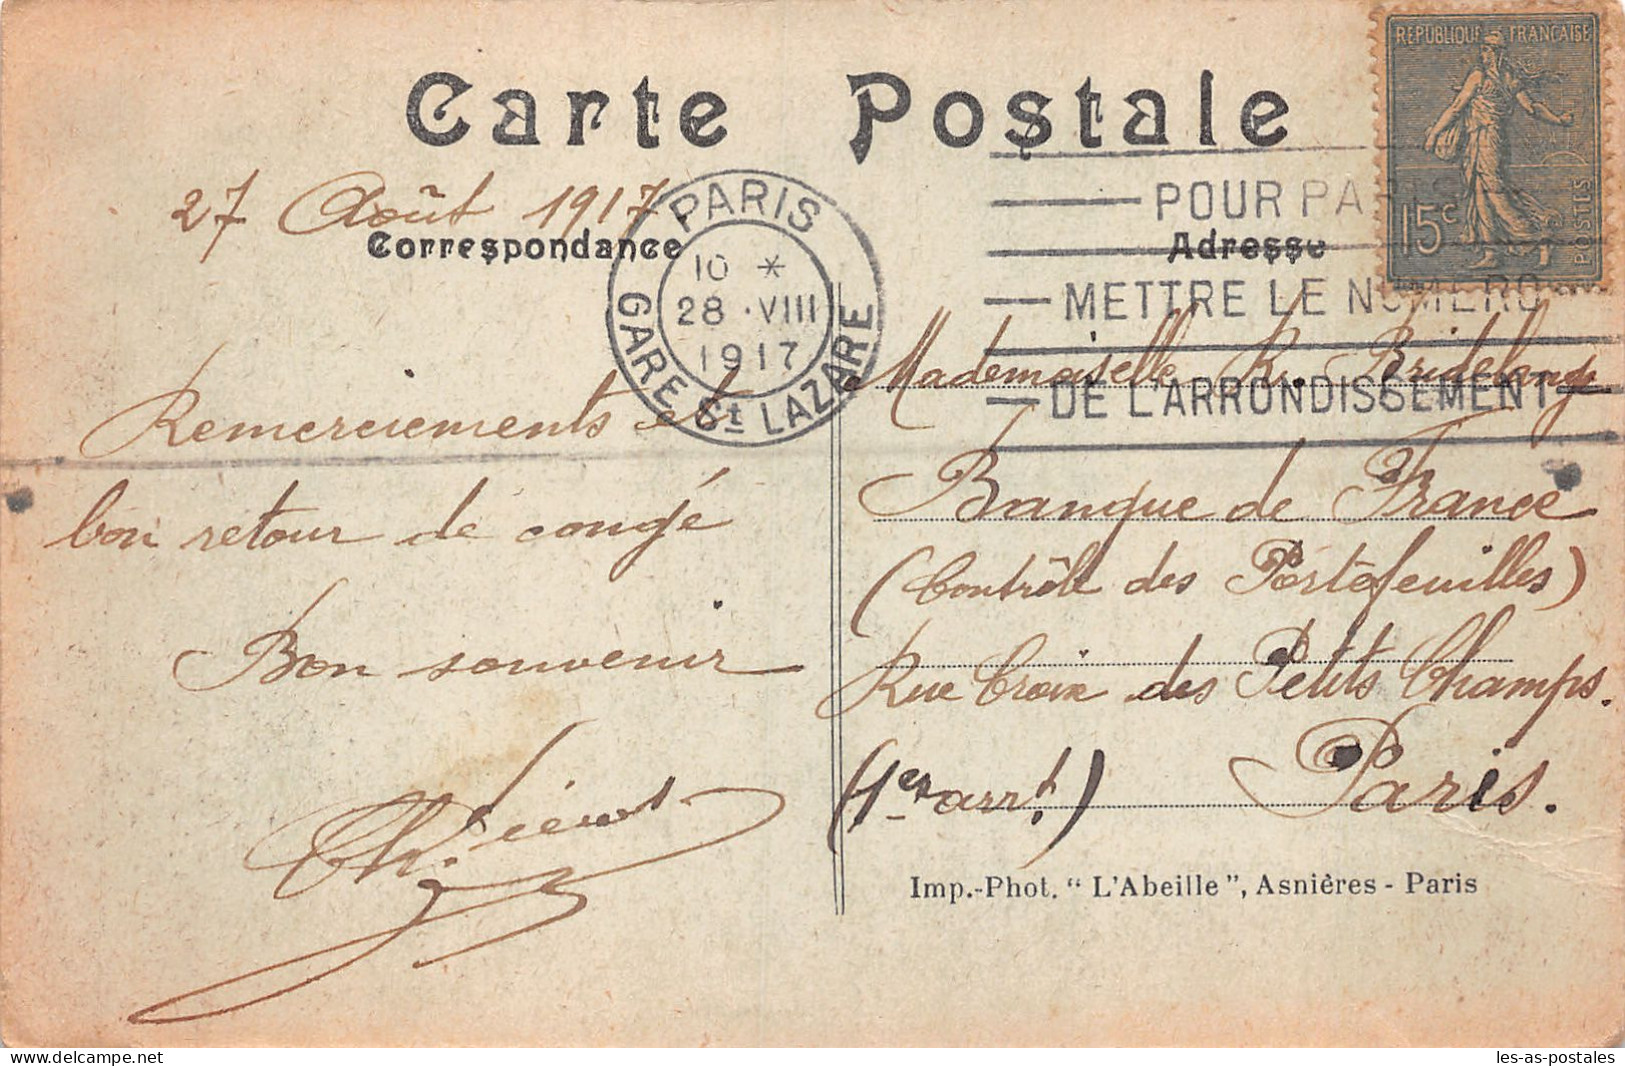 Carte Postale
RÉPUBLIQUE FRANÇAISE
15c
POSTES
27 Août 1917
Correspondance
PARIS
10 *
28 · VIII
1917
GARE St LAZARE
POUR PARIS
METTRE LE NUMERO
DE L'ARRONDISSEMENT
Remerciements et
bon retour de congé
Bon souvenir
Ch.
Adresse
Mademoiselle R.
Banque de France
(Contrôle des Portefeuilles)
Rue Croix des Petits Champs.
(1er arrt)
Paris.
Imp.-Phot. "L'Abeille", Asnières - Paris
delcampe.net
les-as-postales